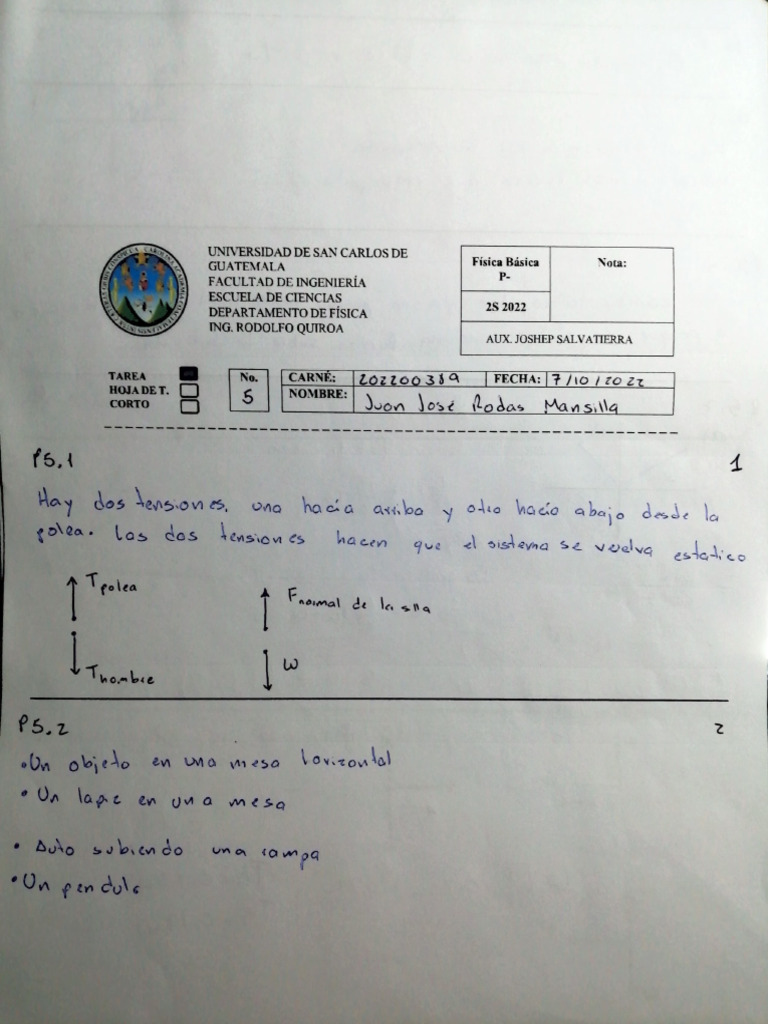 UNIVERSIDAD DE SAN CARLOS DE
GUATEMALA
FACULTAD DE INGENIERÍA
ESCUELA DE CIENCIAS
DEPARTAMENTO DE FÍSICA
ING. RODOLFO QUIROA
Física Básica
P-
Nota:
2S 2022
AUX. JOSHEP SALVATIERRA
TAREA
HOJA DE T.
CORTO
No.
5
CARNÉ: 202200389 FECHA: 7/10/2022
NOMBRE: Juan José Rodas Mansilla
P5.1 1
Hay dos tensiones, una hacia arriba y otra hacia abajo desde la
polea. Las dos tensiones hacen que el sistema se vuelva estatico
T polea
F normal de la silla
T hombre
W
P5.2 2
• Un objeto en una mesa horizontal
• Un lapiz en una mesa
• Auto subiendo una rampa
• Un pendulo